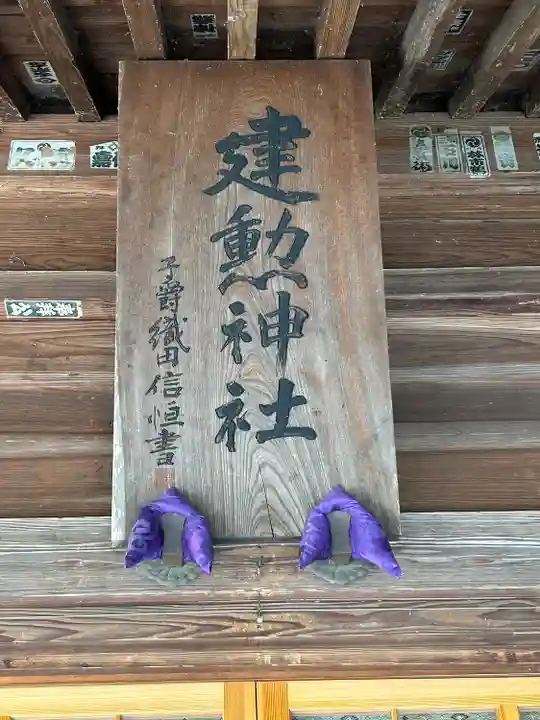 建勲神社
子爵織田信恒書